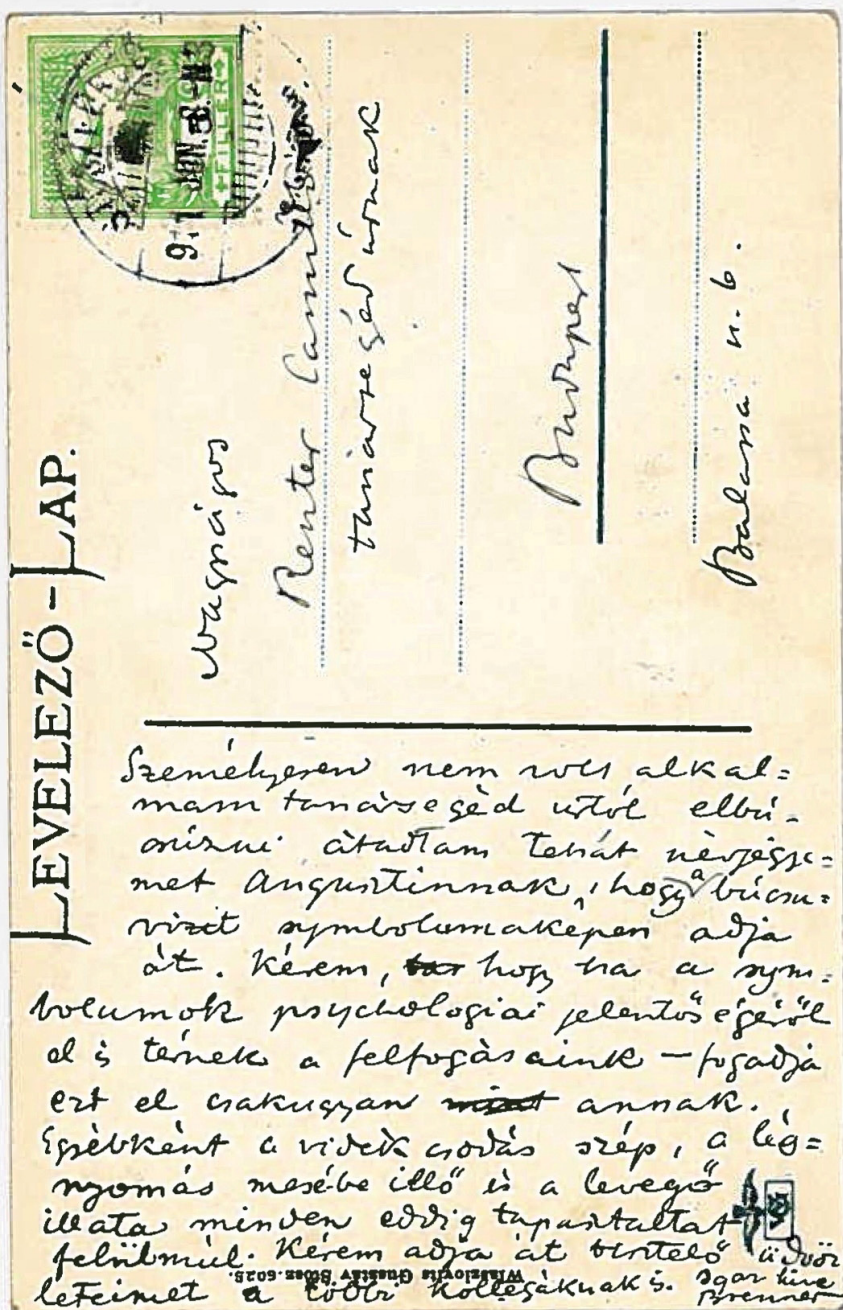 LEVELEZŐ-LAP.
Nagyságos
Reuter Camillo
tanársegéd úrnak
Budapest
Balassa u. 6.
FILLÉR
911 JUN.
Személyesen nem volt alkal=
mam tanársegéd úrtól elbú-
csúzni átadtam tehát névjegye-
met Augustinnak, hogy a búcsu=
vizit symbolumaképen adja
át. Kérem, hogy ha a sym-
bolumok psychologiai jelentőségéről
el is térnek a felfogásaink – fogadja
ezt el csakugyan annak.
Egyébként a vidék csodás szép, a lég=
nyomás mesébe illő és a levegő
illata minden eddig tapasztaltat
felülmúl. Kérem adja át tisztelő üdvöz
leteimet a többi kollegáknak is. igaz híve
Brenner